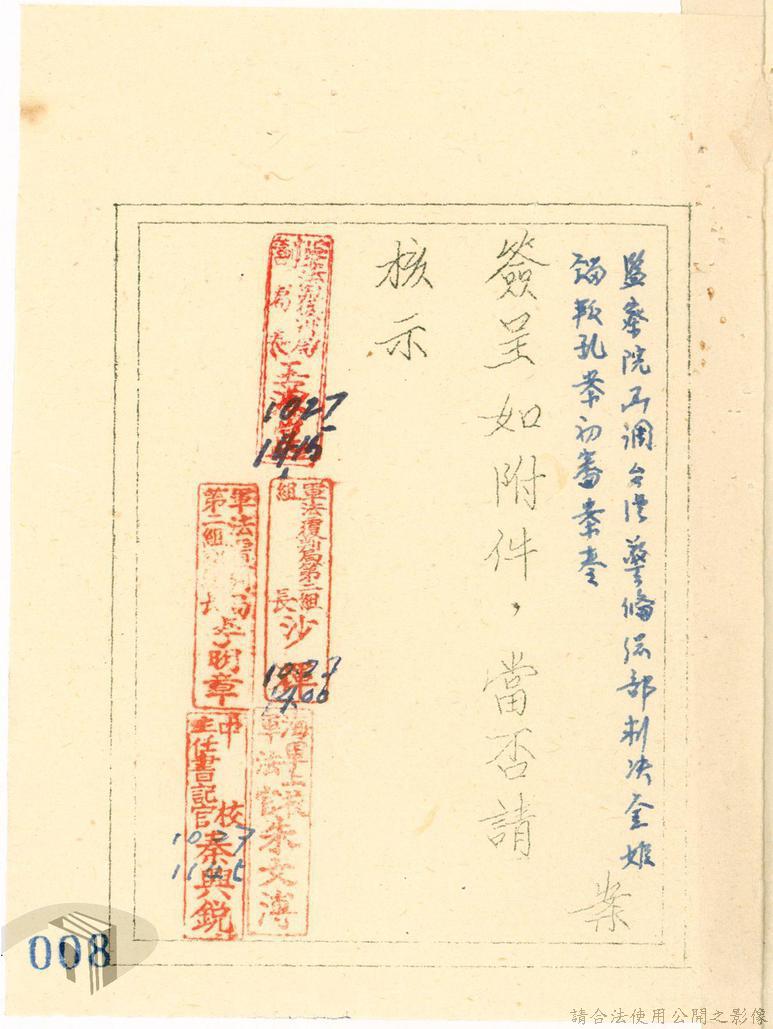 監察院函調台湾警備總部判决金姬
鎦叛乱案初審案卷
案
簽呈如附件，當否請
核示
副局長王
1027
1415
軍法覆判局第二組
組長沙
1027
1400
海軍上
軍法官朱文溥
軍法覆判局
第二組
李明章
中校
主任書記官秦興銳
1027
1145
008
請合法使用公開之影像